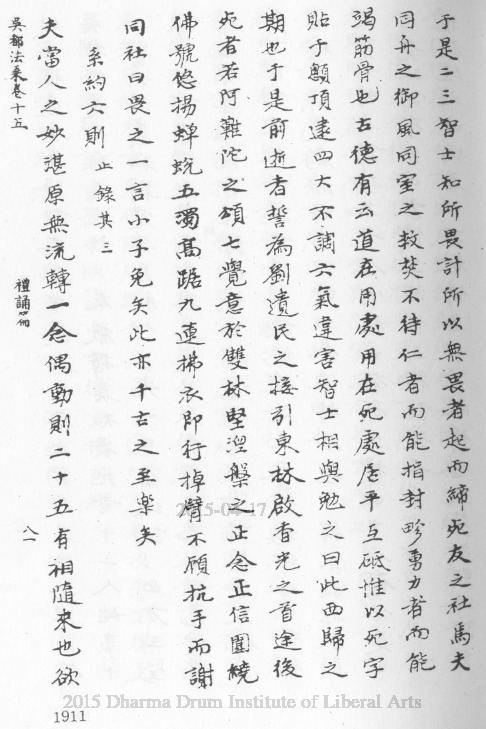 于是二三智士知所畏計所以無畏者起而締死友之社焉夫
同舟之御風同室之救焚不待仁者而能捐封畛勇力者而能
竭筋骨也古德有云道在用處用在死處居平互砥惟以死字
貼于額頂逮四大不調六氣違害智士相與勉之曰此西歸之
期也于是前逝者誓為劉遺民之接引東林啟香光之首途後
死者若阿難陀之頌七覺意於雙林堅涅槃之正念正信圍繞
佛號悠揚蟬蛻五濁高踞九蓮拂衣即行掉臂不顧抗手而謝
同社曰畏之一言小子免矣此亦千古之至樂矣
系約六則 止錄其三
夫當人之妙湛原無流轉一念偶動則二十五有相隨來也欲
吳都法乘卷十五 禮誦篇 八一
2015-04-17
2015 Dharma Drum Institute of Liberal Arts
1911